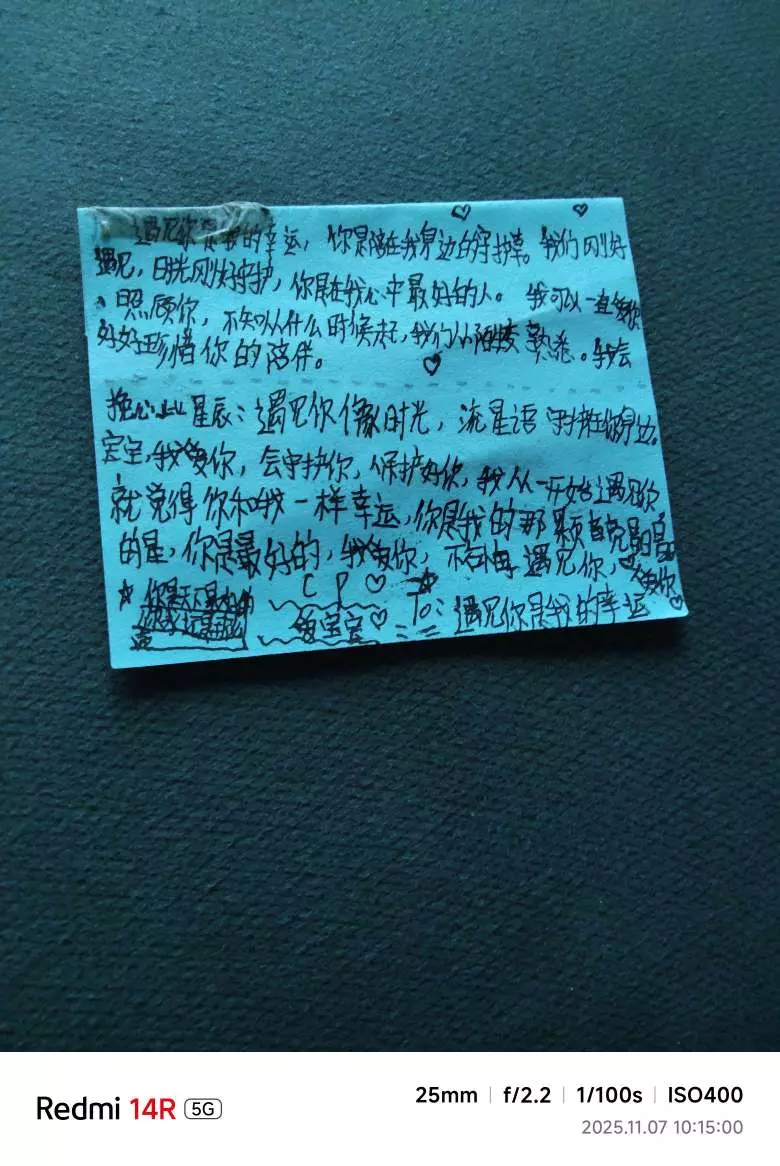 遇见你是我的幸运，你是陪在我身边的守护草。我们刚好
遇见，时光刚好守护，你是在我心中最好的人。我可以一直爱你
、照顾你，不知从什么时候起，我们从陌生变熟悉。我会
好好珍惜你的陪伴。
挽心此星辰：遇见你像时光，流星语守护在你身边。
宝宝，我爱你，会守护你，保护好你，我从一开始遇见你
就觉得你和我一样幸运，你是我的那颗首亮
的星，你是最好的，我爱你，不后悔遇见你，
大爱你
CP
爱宝宝
To：遇见你是我的幸运
Redmi 14R 5G
25mm | f/2.2 | 1/100s | ISO400
2025.11.07 10:15:00